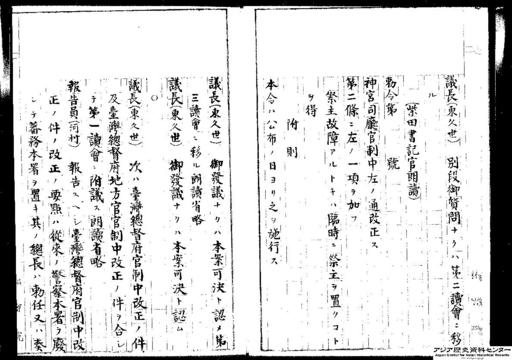 議長(東久世) 別段御質問ナクハ第二讀會ニ移
ル
(柴田書記官朗讀)
勅令第 號
神宮司廳官制中左ノ通改正ス
第二條ニ左ノ一項ヲ加フ
祭主故障アルトキハ臨時ニ祭主ヲ置クコト
ヲ得
附則
本令ハ公布ノ日ヨリ之ヲ施行ス
議長(東久世) 御發議ナクハ本案可決ト認メ第
三讀會ニ移ル朗讀省略
議長(東久世) 御發議ナクハ本案可決ト認ム
○
議長(東久世) 次ハ臺灣總督府官制中改正ノ件
及臺灣總督府地方官官制中改正ノ件ヲ合シ
テ第一讀會ニ附議ス朗讀省略
報告員(河村) 報告スヘシ臺灣總督府官制中改
正ノ件ノ改正ノ要點ハ從來ノ警察本署ヲ廢
シテ蕃務本署ヲ置キ其ノ總長ハ勅任又ハ奏
アジア歴史資料センター
Japan Center for Asian Historical Records